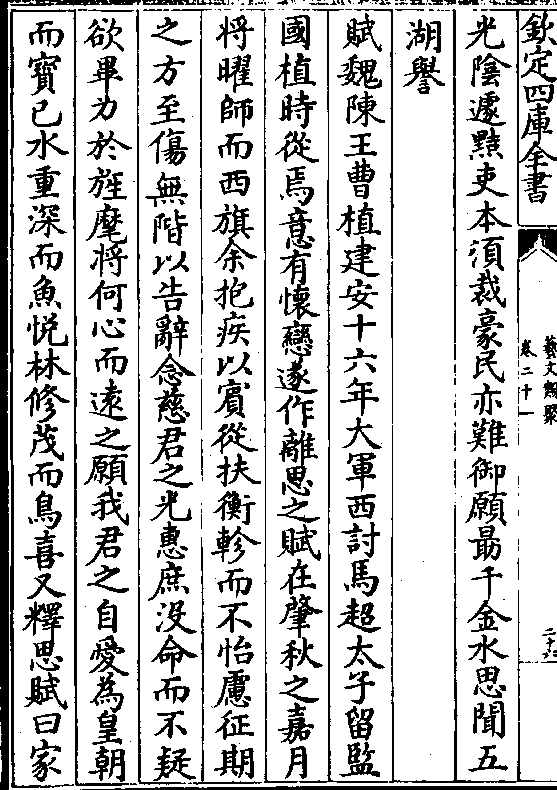 欽定四庫全書
藝文類聚
卷二十一
二十六
光陰遽黠吏本須裁豪民亦難御願最千金水思聞五
湖譽
賦魏陳王曹植建安十六年大軍西討馬超太子留監
國植時從焉意有懷戀遂作離思之賦在肇秋之嘉月
將曜師而西旗余抱疾以賓從扶衡軫而不怡慮征期
之方至傷無階以告辭念慈君之光惠庶没命而不疑
欲畢力於旌麾將何心而遠之願我君之自愛為皇朝
而寳己水重深而魚悦林修茂而鳥喜又釋思賦曰家